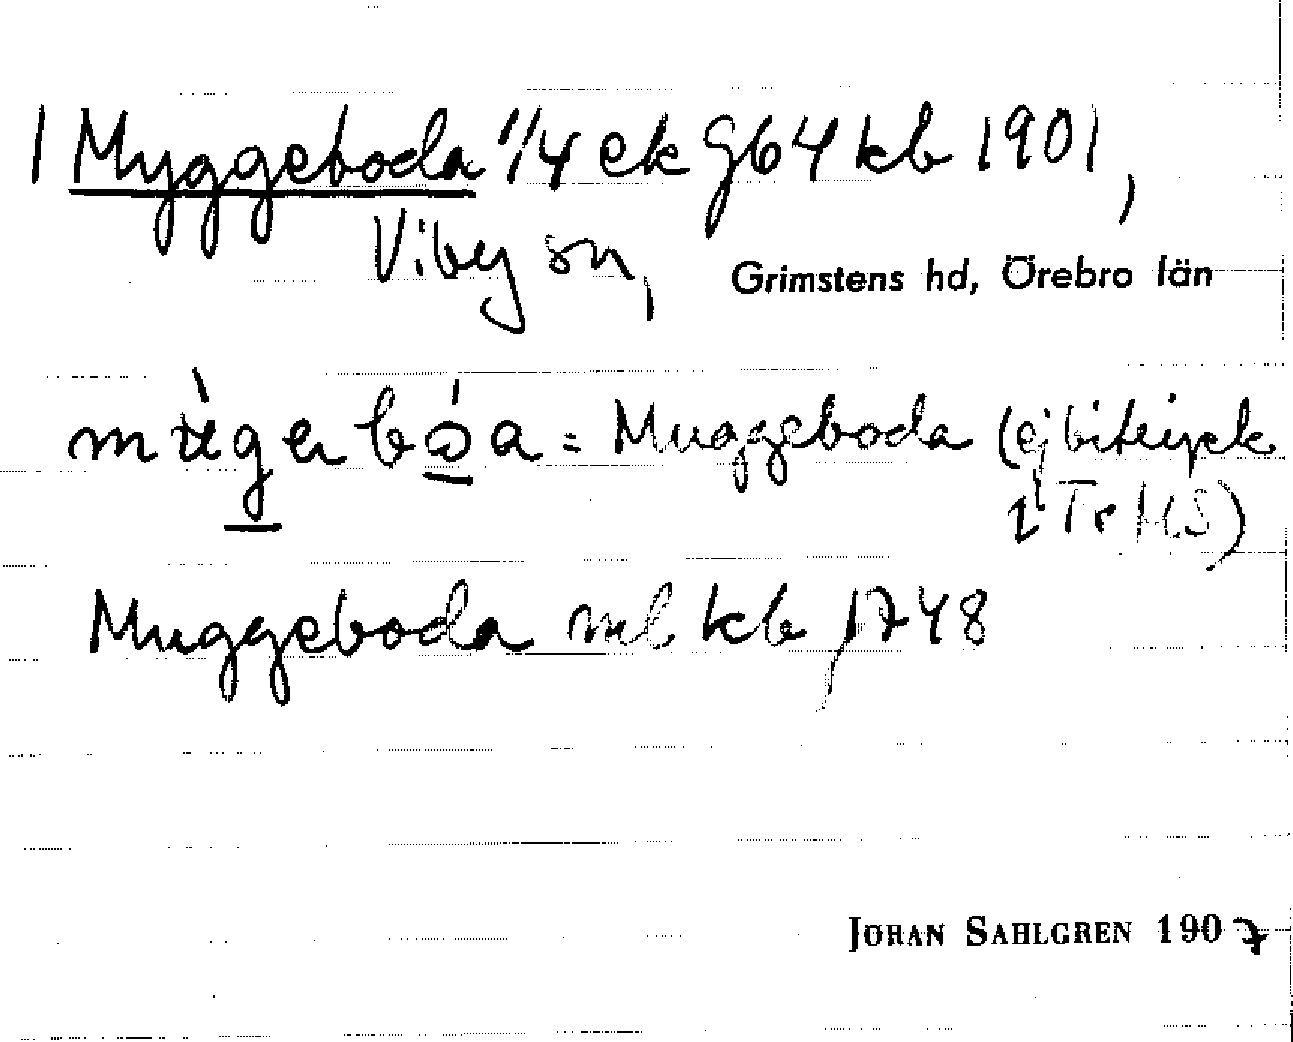 1 Myggeboda 1/4 ek G64 kb 1901,
Viby sn, Grimstens hd, Örebro län
= Muggeboda (ej bitryck
i
Muggeboda ml kb 1748
JOHAN SAHLGREN 1907